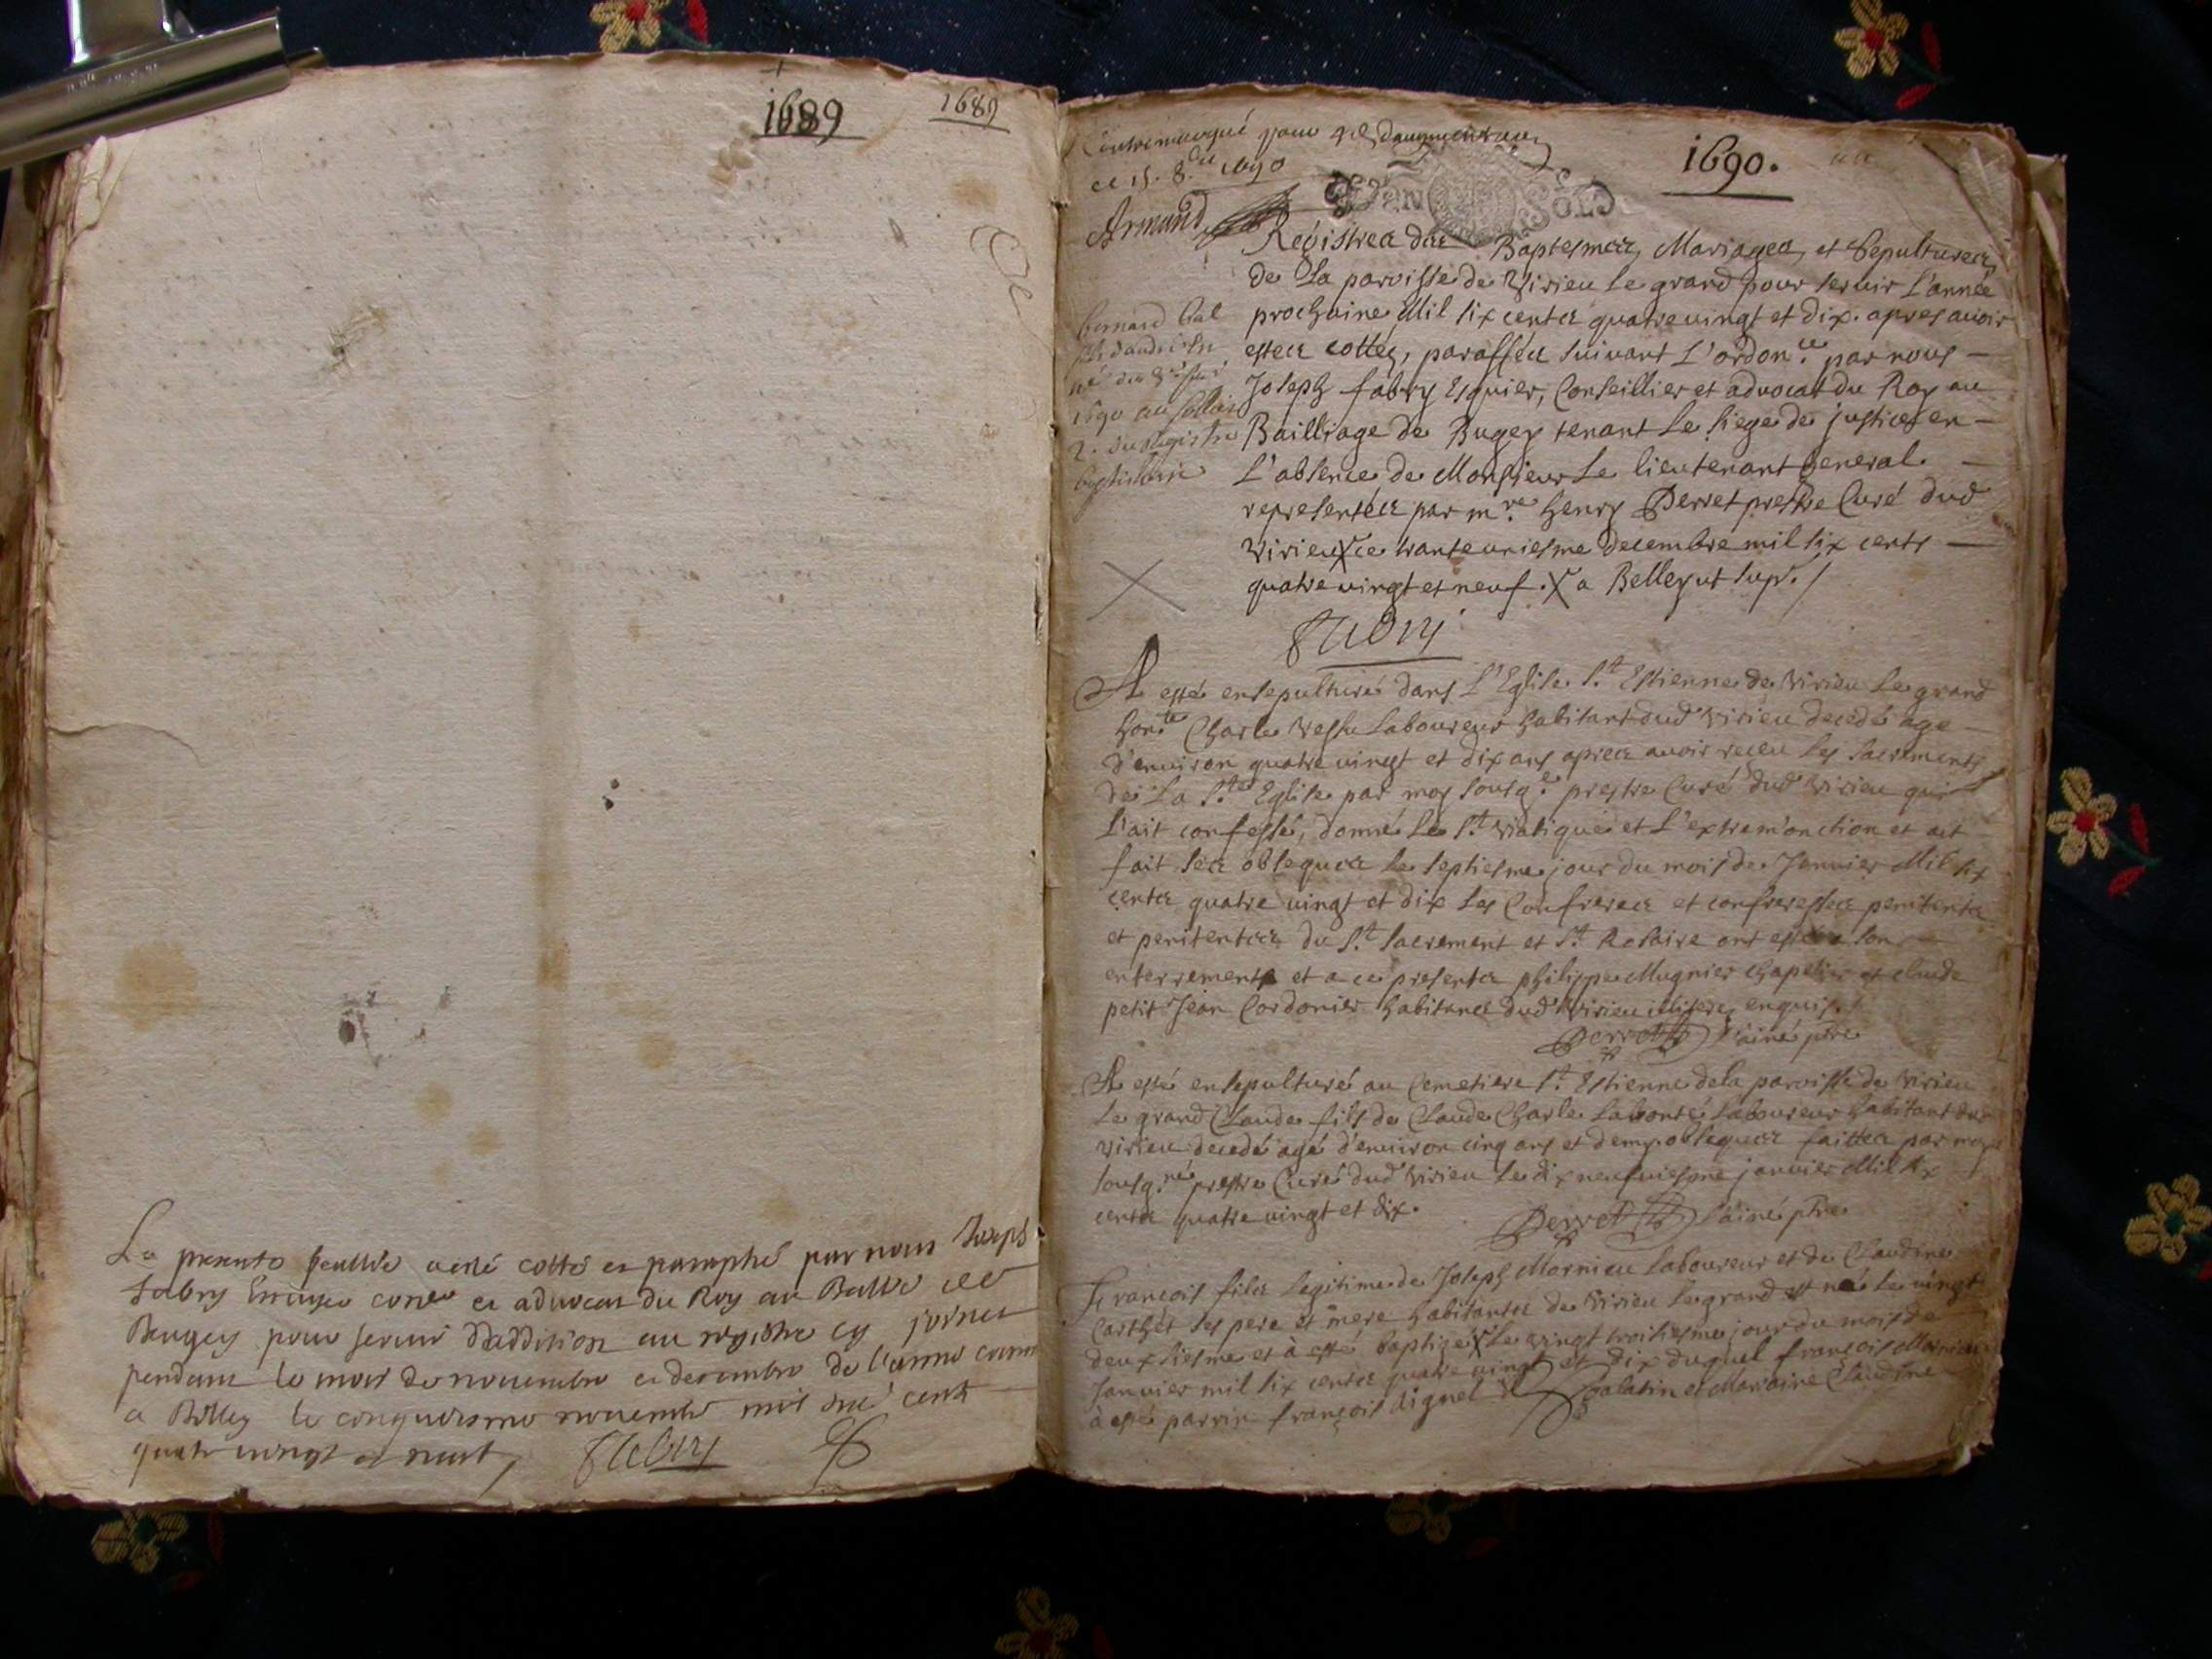 1689
1689
La presente feuille a esté cotté et paraphé par nous Joseph
fabry Escuyer con.er et advocat du Roy au Balle de
Beugey pour servir d'addition au registre cy joinct
pendant le mois de novembre et decembre de l'année
a Belley le cinquiesme novembre mil six cents
quatre vingt et neuf,
fabry
1690.
Contremarqué pour
ce 15. 8.bre 1690
Armand
Registres des Baptesmes, Mariages, et Sepultures
de La paroisse de Virieu Le grand pour servir L'année
prochaine Mil six cents quatre vingt et dix. apres avoir
estes cottés, paraffés suivant L'ordon.ce par nous
Joseph fabry Esquier, Conseillier et advocat du Roy au
Bailliage de Bugey tenant Le siege de justice en
L'absence de Monsieur Le lieutenant General.
representés par m.re henry Perret prestre Curé dud
Virieu X ce trante uniesme decembre mil six cents
quatre vingt et neuf. X a Belley ut sup. /
fabry
bernard
né
1690 au
2. du registre
X
A esté ensepulturé dans L'Eglise S.t Estienne de Virieu Le grand
hon.te Charle Laboureur habitant dud Virieu decedé age
d'environ quatre vingt et dix ans apres avoir receu les sacrements
de La S.te Eglise par moy sousg.é prestre Curé dud Virieu qui
L'ait confessé, donné Le S.t Viatique et L'extrem'onction et ait
fait ses obseques le septiesme jour du mois de Janvier Mil six
cents quatre vingt et dix Les Confreres et confreresses penitents
et penitentes du S.t Sacrement et S.t Rosaire ont esté a son
enterrement et a ce presents philippe Mugnier chapelier et claude
petit Jean Cordonier habitans dud Virieu illiteres enquis.
Perret L'ainé ptre
A esté ensepulturé au Cemetiere S.t Estienne de la paroisse de Virieu
Le grand Claude fils de Claude Charle Labonté Laboureur habitant dud
Virieu decedé agé d'environ cinq ans et demy obseques faittes par moy
sousg.né prestre Curé dud Virieu Le dix neufviesme janvier Mil six
cents quatre vingt et dix.
Perret L'ainé ptre
François fils legitime de Joseph Mornieu Laboureur et de Claudine
ses pere et mere habitants de Virieu Le grand est né le vingt
deuxsiesme et à esté baptizé X Le vingt troisiesme jour du mois de
Janvier mil six cents quatre vingt et dix duquel françois Mornieu
à esté parrin françois et Marraine Claudine